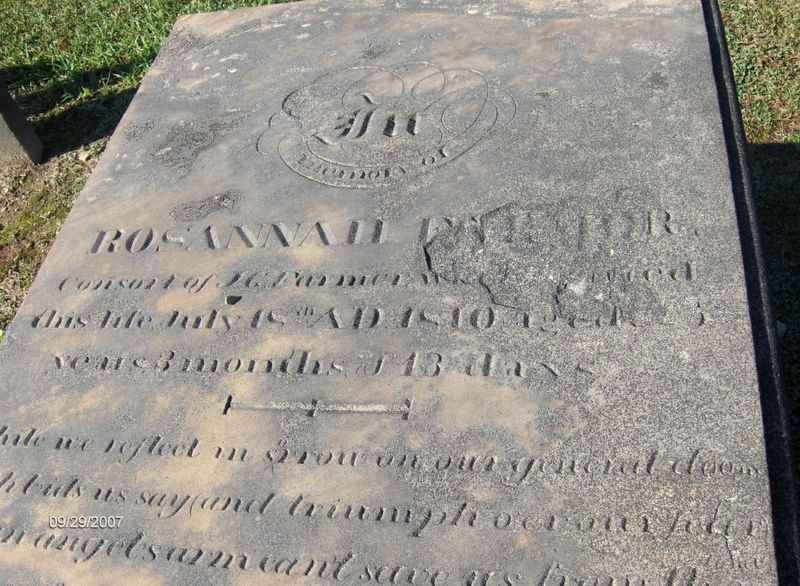 In
Memory of
ROSANNAH
Consort of J.G. Farmer,
this life July 18th AD 1810 aged
years 3 months & 13 days
while we reflect in Srrow on our general doom
bids us say (and triumph o'er our
angels arm can't save us from
09/29/2007